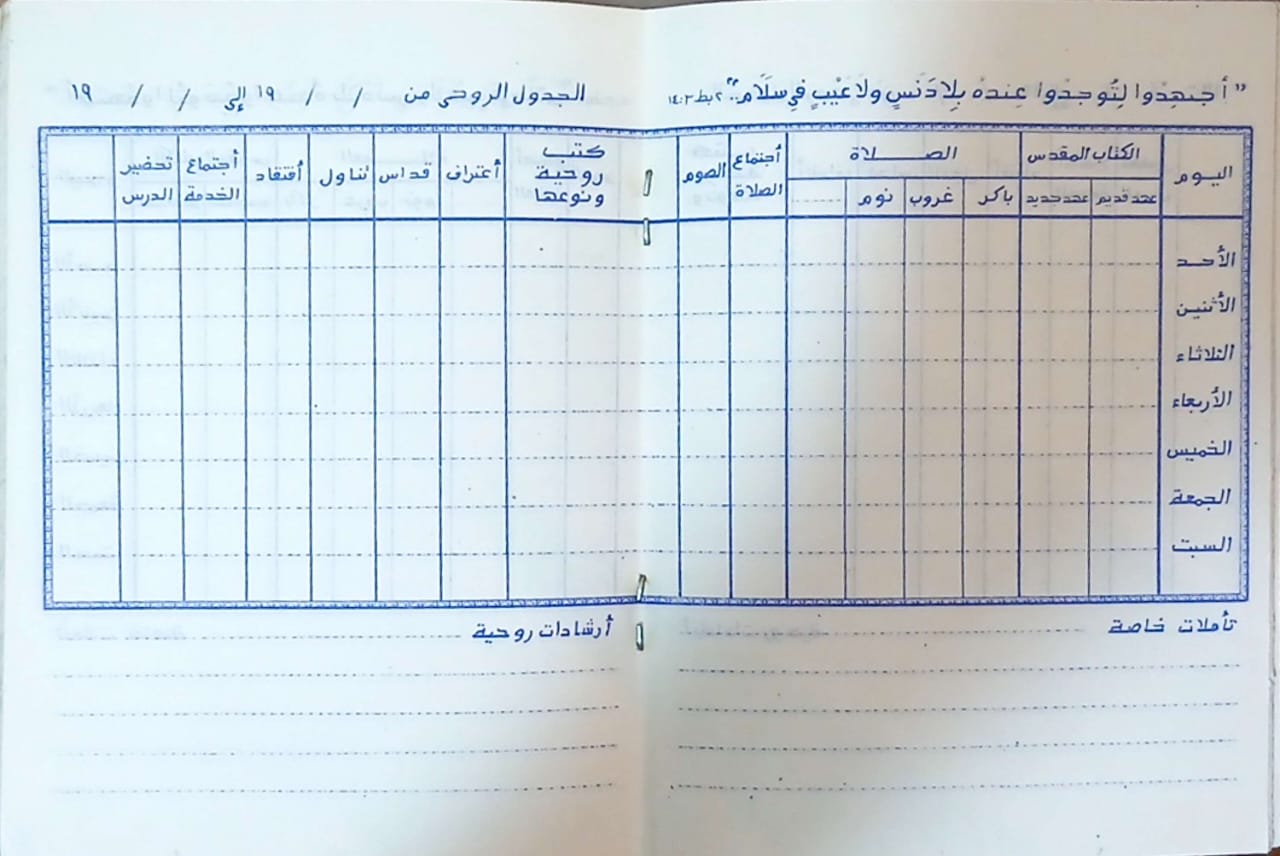 "أجتهِدُوا لِتُوجَدُوا عِندهُ بِلادَنَسٍ ولاعَيْبٍ فِي سَلَامٍ.." ٢ بط ٣ :١٤
الجدول الروحى من / / ١٩ إلى / / ١٩
اليوم
الكتاب المقدس
عهد قديم
عهد جديد
الصـــــــلاة
باكر
غروب
نوم
أجتماع الصلاة
الصوم
كتب روحية ونوعها
أعتراف
قداس
تناول
أفتقاد
أجتماع الخدمة
تحضير الدرس
الأحد
الأثنين
الثلاثاء
الأربعاء
الخميس
الجمعة
السبت
تأملات خاصة
أرشادات روحية